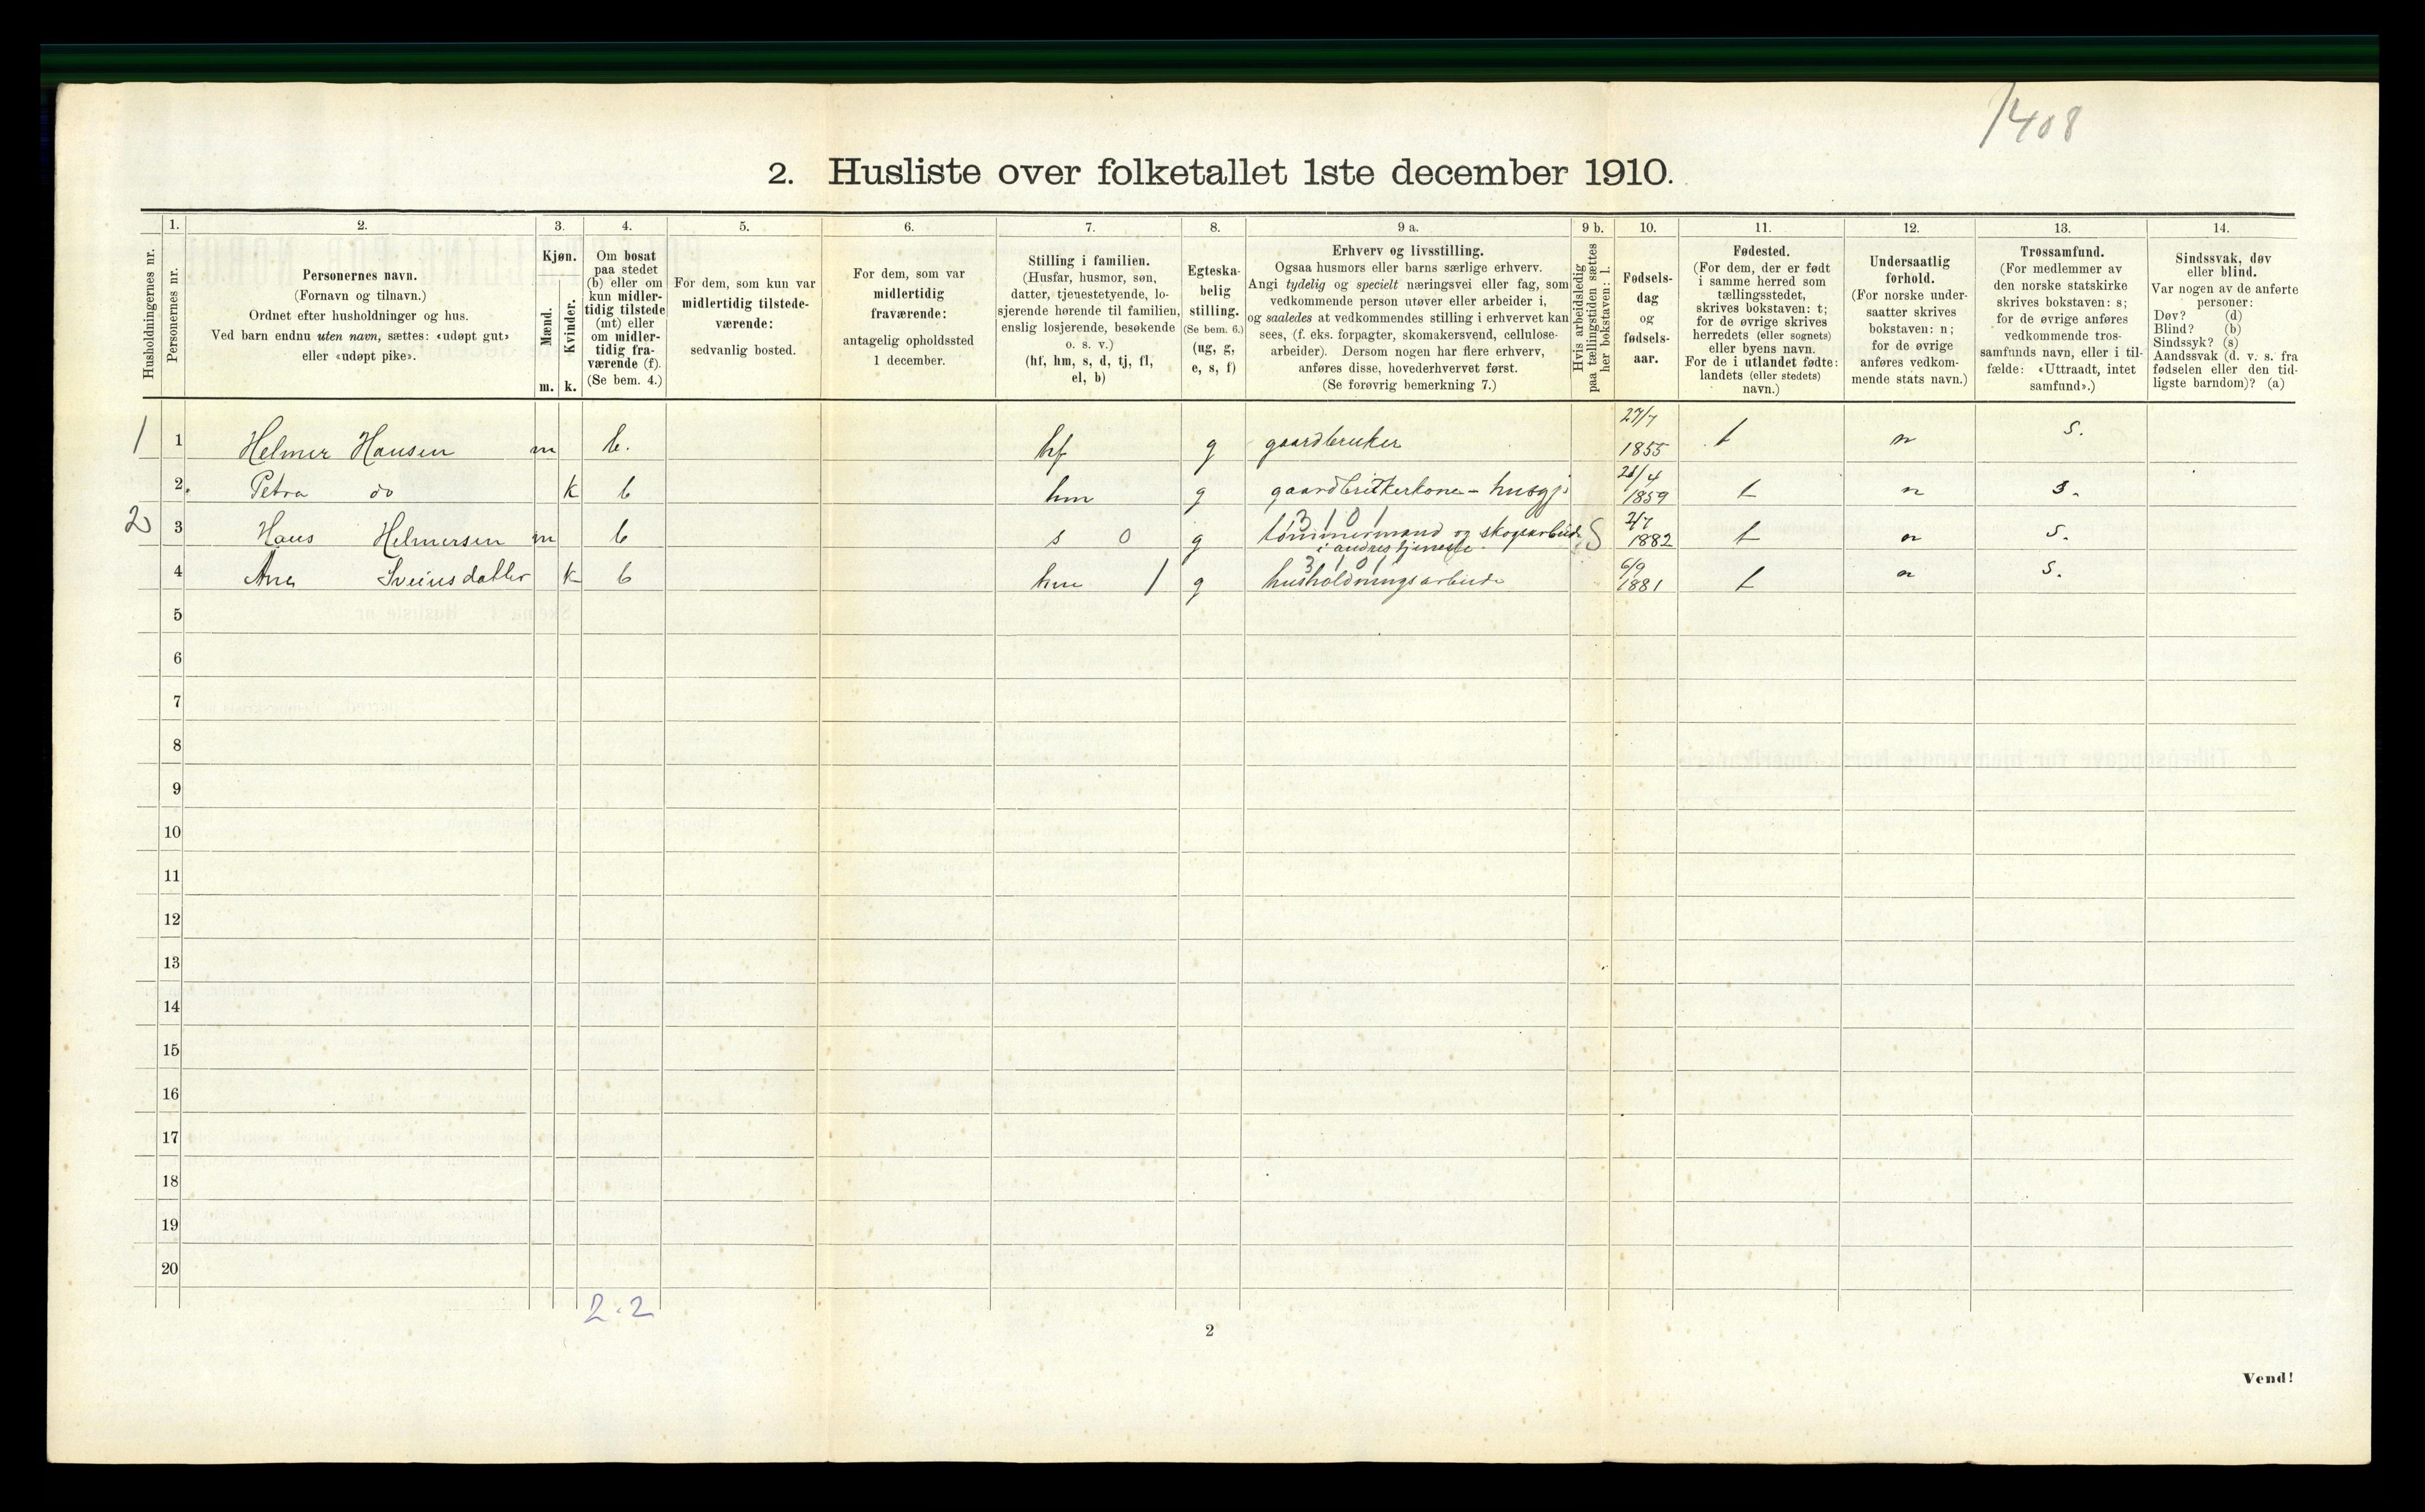 1408
2. Husliste over folketallet 1ste december 1910.
Husholdningernes nr.
1.
Personernes nr.
2.
Personernes navn.
(Fornavn og tilnavn.)
Ordnet efter husholdninger og hus.
Ved barn endnu uten navn, sættes: «udøpt gut»
eller «udøpt pike».
3.
Kjøn.
Mænd.
Kvinder.
m. k.
4.
Om bosat
paa stedet
(b) eller om
kun midler-
tidig tilstede
(mt) eller
om midler-
tidig fra-
værende (f).
(Se bem. 4.)
5.
For dem, som kun var
midlertidig tilstede-
værende:
sedvanlig bosted.
6.
For dem, som var
midlertidig
fraværende:
antagelig opholdssted
1 december.
7.
Stilling i familien.
(Husfar, husmor, søn,
datter, tjenestetyende, lo-
sjerende hørende til familien,
enslig losjerende, besøkende
o. s. v.)
(hf, hm, s, d, tj, fl,
el, b)
8.
Egteska-
belig
stilling.
(Se bem. 6.)
(ug, g,
e, s, f)
9 a.
Erhverv og livsstilling.
Ogsaa husmors eller barns særlige erhverv.
Angi tydelig og specielt næringsvei eller fag, som
vedkommende person utøver eller arbeider i,
og saaledes at vedkommendes stilling i erhvervet kan
sees, (f. eks. forpagter, skomakersvend, cellulose-
arbeider). Dersom nogen har flere erhverv,
anføres disse, hovederhvervet først.
(Se forøvrig bemerkning 7.)
9 b.
Hvis arbeidsledig
paa tællingstiden sættes
her bokstaven: l.
10.
Fødsels-
dag
og
fødsels-
aar.
11.
Fødested.
(For dem, der er født
i samme herred som
tællingsstedet,
skrives bokstaven: t;
for de øvrige skrives
herredets (eller sognets)
eller byens navn.
For de i utlandet fødte:
landets (eller stedets)
navn.)
12.
Undersaatlig
forhold.
(For norske under-
saatter skrives
bokstaven: n;
for de øvrige
anføres vedkom-
mende stats navn.)
13.
Trossamfund.
(For medlemmer av
den norske statskirke
skrives bokstaven: s;
for de øvrige anføres
vedkommende tros-
samfunds navn, eller i til-
fælde: «Uttraadt, intet
samfund».)
14.
Sindssvak, døv
eller blind.
Var nogen av de anførte
personer:
Døv? (d)
Blind? (b)
Sindssyk? (s)
Aandssvak (d. v. s. fra
fødselen eller den tid-
ligste barndom)? (a)
1 1 Helmer Hansen m b. hf g gaardbruker 27/7 1855 t n s.
2 Petra do k b hm g gaardbrukerkone - husgj. /4 1859 t n s.
2 3 Hans Helmersen m b s 0 g 3 1 0 1 tømmermand og skogsarbeid. i andres tjeneste. S 2/7 1882 t n s.
4 Ane Sveinsdatter k b hm 1 g 3 1 0 1 husholdningsarbeide 6/9 1881 t n s.
5
6
7
8
9
10
11
12
13
14
15
16
17
18
19
20
2.2
2
Vend!